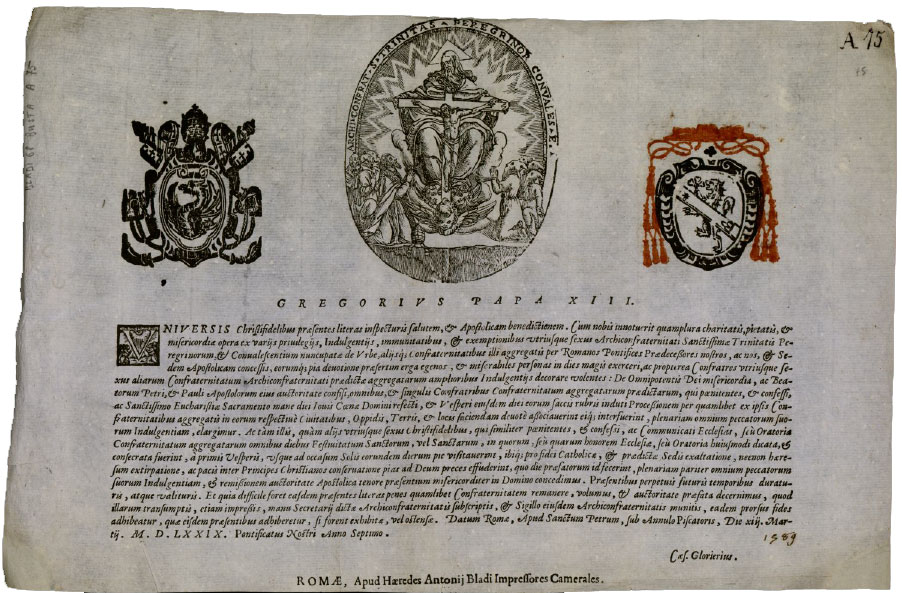 ARCHI. CONFRAT. S. TRINITAS PEREGRINOR CONVALES. E.
A 15
GREGORIVS PAPA XIII.
VNIVERSIS Christifidelibus præsentes literas inspecturis salutem, & Apostolicam benedictionem. Cum nobis innotuerit quamplura charitatis, pietatis, &
misericordiæ opera ex varijs priuilegijs, Indulgentijs, immunitatibus, & exemptionibus vtriusque sexus Archiconfraternitati Sanctissimæ Trinitatis Pe-
regrinorum, & Conualescentium nuncupatæ de Vrbe, alijsq; Confraternitatibus illi aggregatis per Romanos Pontifices Prædecessores nostros, ac nos, & Se-
dem Apostolicam concessis, eorumq; pia deuotione præsertim erga egenos, & miserabiles personas in dies magis exerceri, ac propterea Confratres vtriusque se-
xus aliarum Confraternitatum Archiconfraternitati prædictæ aggregatarum amplioribus Indulgentijs decorare volentes: De Omnipotentis Dei misericordia, ac Bea-
torum Petri, & Pauli Apostolorum eius auctoritate confisi, omnibus, & singulis Confratribus Confraternitatum aggregatarum prædictarum, qui pœnitentes, & confessi,
ac Sanctissimo Eucharistiæ Sacramento mane diei Iouis Cœnæ Domini refecti, & Vesperi eiusdem diei eorum saccis rubris induti Processionem per quamlibet ex ipsis Con-
fraternitatibus aggregatis in eorum respectiuè Ciuitatibus, Oppidis, Terris, & locis faciendam deuotè associauerint eiq; interfuerint, plenariam omnium peccatorum suo-
rum Indulgentiam, elargimur. At tàm illis, quàm alijs vtriusque sexus Christifidelibus, qui similiter pœnitentes, & confessi, ac Communicati Ecclesias, seù Oratoria
Confraternitatum aggregatarum omnibus diebus Festiuitatum Sanctorum, vel Sanctarum, in quorum, seù quarum honorem Ecclesiæ, seù Oratoria huiusmodi dicata, &
consecrata fuerint, à primis Vesperis, vsque ad occasum Solis eorundem dierum piè visitauerint, ibiq; pro fidei Catholicæ, & prædictæ Sedis exaltatione, necnon hære-
sum extirpatione, ac pacis inter Principes Christianos conseruatione pias ad Deum preces effuderint, quo die præsatorum id fecerint, plenariam pariter omnium peccatorum
suorum Indulgentiam, & remissionem auctoritate Apostolica tenore præsentium misericorditer in Domino concedimus. Præsentibus perpetuis futuris temporibus duratu-
ris, atque valituris. Et quia difficile foret easdem præsentes literas penes quamlibet Confraternitatem remanere, volumus, & auctoritate præfata decernimus, quod
illarum transumptis, etiam impressis, manu Secretarij dictæ Archiconfraternitatis subscriptis, & Sigillo eiusdem Archiconfraternitatis munitis, eadem prorsus fides
adhibeatur, quæ eisdem præsentibus adhiberetur, si forent exhibitæ, vel ostensæ. Datum Romæ, Apud Sanctum Petrum, sub Annulo Piscatoris, Die xiij. Mar-
tij. M. D. LXXIX. Pontificatus Nostri Anno Septimo.
1589
Cæs. Glorierius.
ROMÆ, Apud Hæredes Antonij Bladi Impressores Camerales.